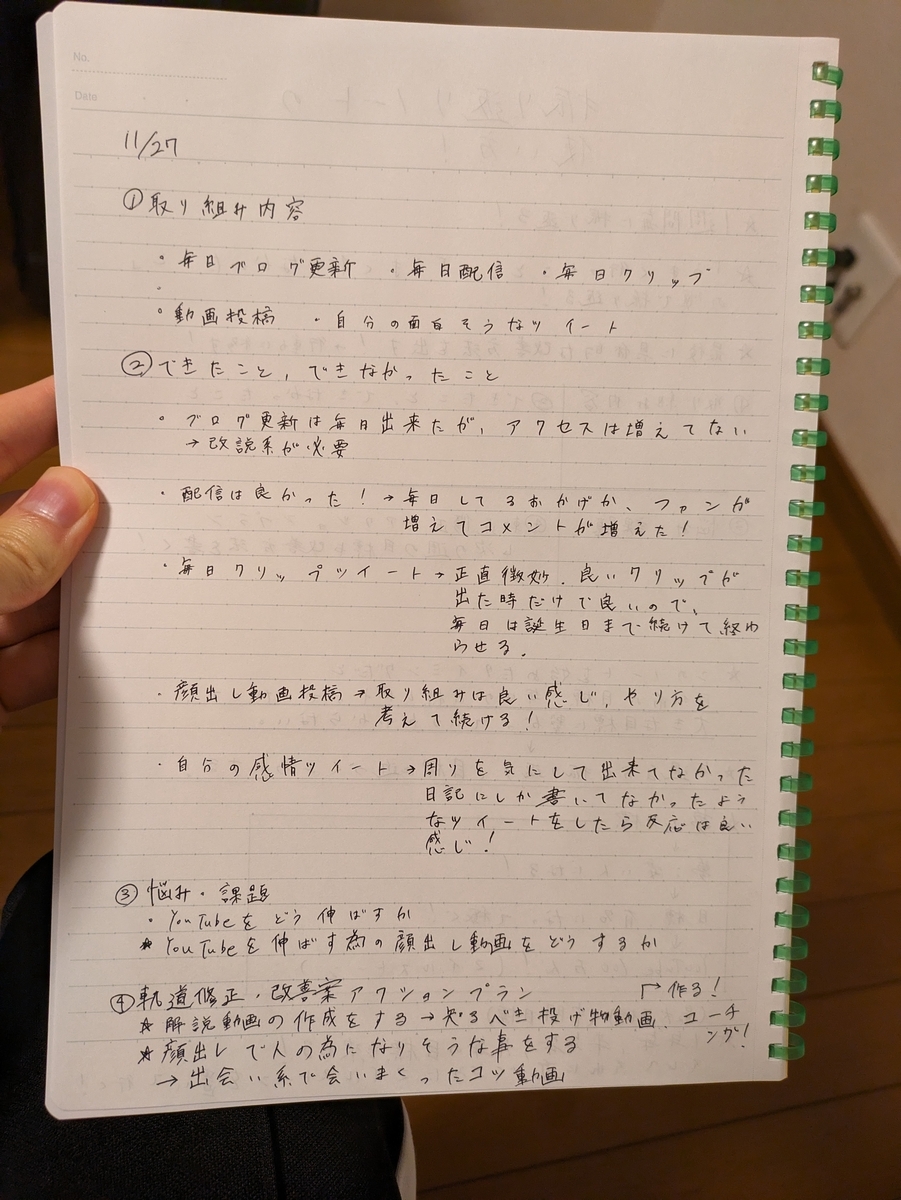 No.
Date
11/27
①取り組み内容
・毎日ブログ更新 ・毎日配信 ・毎日クリップ
・動画投稿 ・自分の面白そうなツイート
②できたこと,できなかったこと
・ブログ更新は毎日出来たが、アクセスは増えてない
→改説系が必要
・配信は良かった!→毎日してるおかげか、ファンが
増えてコメントが増えた!
・毎日クリップツイート→正直微妙.良いクリップが
出た時だけで良いので、
毎日は誕生日まで続けて終わ
らせる.
・顔出し動画投稿→取り組みは良い感じ,やり方を
考えて続ける!
・自分の感情ツイート→周りを気にして出来てなかった
日記にしか書いてなかったよう
なツイートをしたら反応は良い
感じ!
③悩み・課題
・YouTubeをどう伸ばすか
★YouTubeを伸ばす為の顔出し動画をどうするか
④軌道修正・改善案アクションプラン
→作る!
☆解説動画の作成をする→知るべき投げ物動画、コーチ
ング!
☆顔出しで人の為になりそうな事をする
→出会い系で会いまくったコツ動画